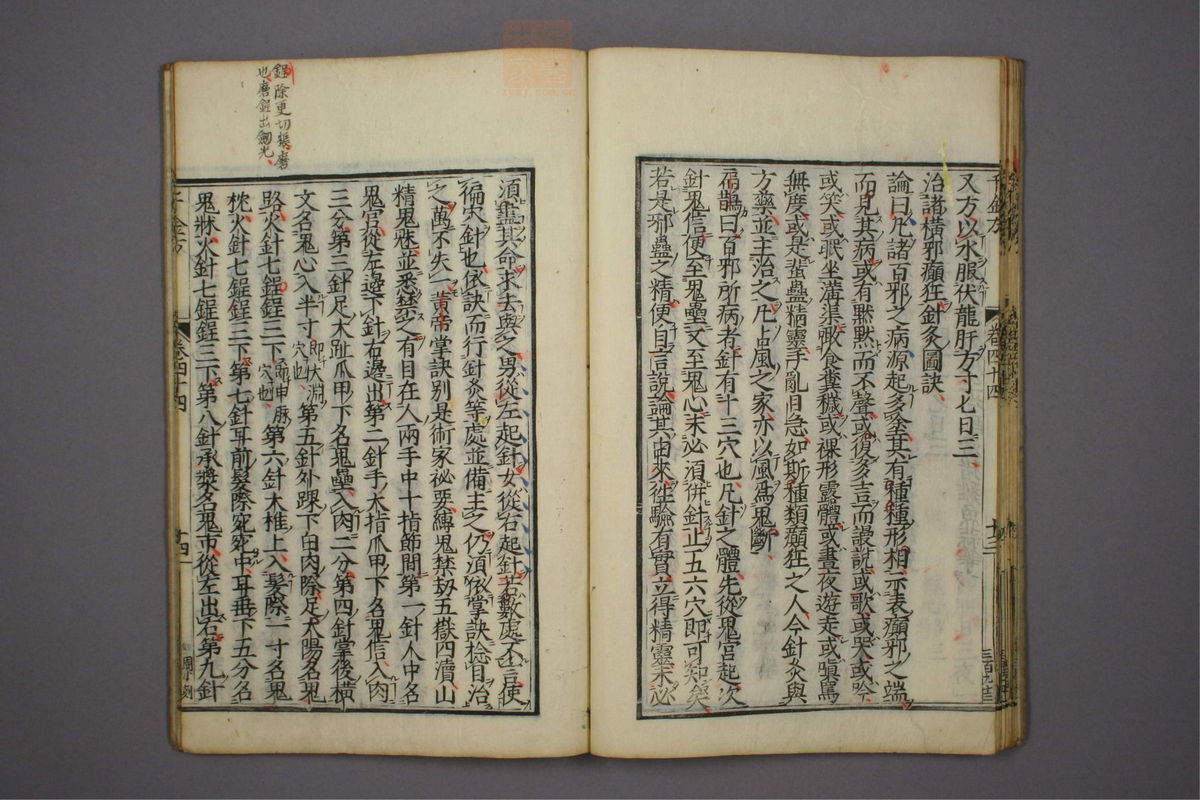 又方以水服伏龍肝方寸匕日三
治諸橫邪癲狂針灸圖訣
論曰凡諸百邪之病源起多塗其有種種形相示表癲邪之端
而見其病或有默默而不聲或復多言而謾說或歌或哭或吟
或笑或眠坐溝渠噉食糞穢或裸形露體或晝夜遊走或嗔罵
無度或是蜚蠱精靈手亂目急如斯種類癲狂之人今針灸與
方藥並主治之凡占風之家亦以風爲鬼斷
扁鵲曰百邪所病者針有十三穴也凡針之體先從鬼宮起次
針鬼信便至鬼壘又至鬼心未必須併針止五六穴即可知矣
若是邪蠱之精便自言說論其由來往驗有實立得精靈未必
千金方 卷四十四 十三
三百九十三
須盡其命求去與之男從左起針女從右起針若數處不言使
徧穴針也依訣而行針灸等處並備主之仍須依掌訣捻目治
之萬不失一黃帝掌訣別是術家祕要縛鬼禁劾五嶽四瀆山
精鬼魅並悉禁之有目在人兩手中十指節間第一針人中名
鬼宮從左邊下針右邊出第二針手大指爪甲下名鬼信入肉
三分第三針足大趾爪甲下名鬼壘入肉二分第四針掌後橫
文名鬼心入半寸即太淵穴也第五針外踝下白肉際足太陽名鬼
路火針七鋥鋥三下即申脉穴也第六針大椎上入髮際一寸名鬼
枕火針七鋥鋥三下第七針耳前髮際宛宛中耳垂下五分名
鬼牀火針七鋥鋥三下第八針承漿名鬼市從左出右第九針
千金方 卷四十四 十四
鋥除更切振磨
也磨鋥出劒光